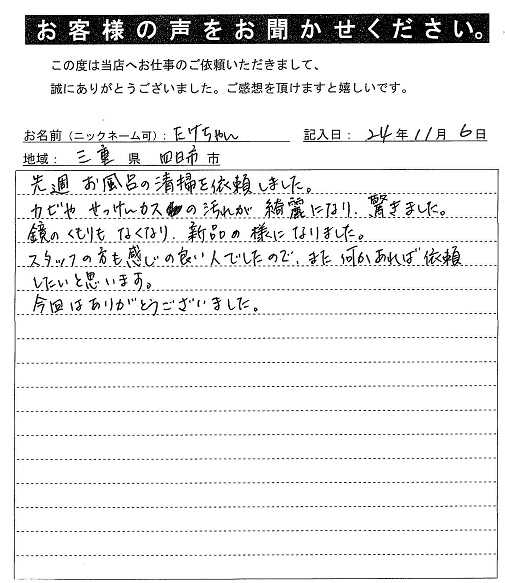 お客様の声をお聞かせください。
この度は当店へお仕事のご依頼いただきまして、
誠にありがとうございました。ご感想を頂けますと嬉しいです。
お名前（ニックネーム可）：たけちゃん 記入日：24年11月6日
地域：三重県四日市市
先週 お風呂の清掃を依頼しました。
カビや せっけんカスの汚れが 綺麗になり、驚きました。
鏡のくもりも なくなり、新品の様になりました。
スタッフの方も感じの良い人でしたので、また何かあれば依頼
したいと思います。
今回はありがとうございました。